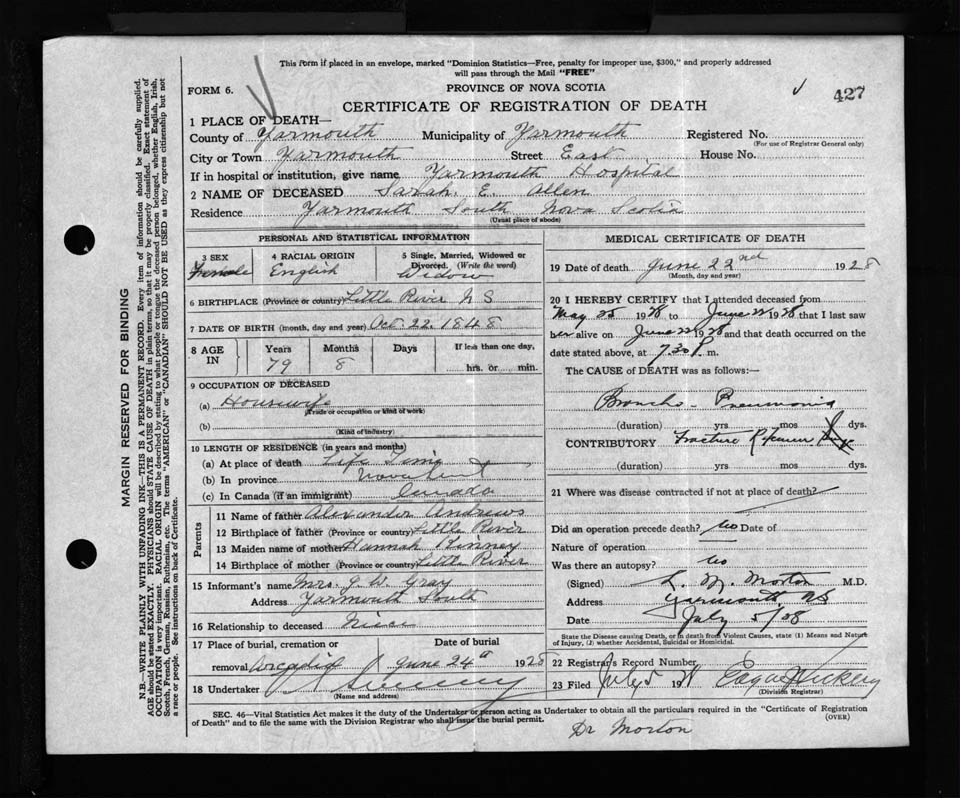 This form if placed in an envelope, marked "Dominion Statistics—Free, penalty for improper use, $300," and properly addressed
will pass through the Mail "FREE"
FORM 6.
PROVINCE OF NOVA SCOTIA
427
CERTIFICATE OF REGISTRATION OF DEATH
1 PLACE OF DEATH—
County of Yarmouth Municipality of Yarmouth Registered No.
(For use of Registrar General only)
City or Town Yarmouth Street East House No.
If in hospital or institution, give name Yarmouth Hospital
2 NAME OF DECEASED Sarah E. Allen
Residence Yarmouth South Nova Scotia
(Usual place of abode)
PERSONAL AND STATISTICAL INFORMATION
3 SEX Female
4 RACIAL ORIGIN English
5 Single, Married, Widowed or Divorced. (Write the word) Widow
6 BIRTHPLACE (Province or country) Little River N S
7 DATE OF BIRTH (month, day and year) Oct. 22. 1848
8 AGE IN Years 79 Months 8 Days If less than one day, hrs. or min.
9 OCCUPATION OF DECEASED
(a) Housewife
(Trade or occupation or kind of work)
(b)
(Kind of industry)
10 LENGTH OF RESIDENCE (in years and months)
(a) At place of death Life Time
(b) In province
(c) In Canada (if an immigrant) Canada
Parents
11 Name of father Alexander Andrews
12 Birthplace of father (Province or country) Little River
13 Maiden name of mother Hannah Kinney
14 Birthplace of mother (Province or country) Little River
15 Informant's name Mrs. J. W. Gray
Address Yarmouth South
16 Relationship to deceased Niece
17 Place of burial, cremation or removal Arcadia Date of burial June 24 1928
18 Undertaker
(Name and address)
MEDICAL CERTIFICATE OF DEATH
19 Date of death June 22nd 1928
(Month, day and year)
20 I HEREBY CERTIFY that I attended deceased from
May 25 1928 to June 22 1928 that I last saw
her alive on June 22 1928 and that death occurred on
date stated above, at 7.30 P. m.
The CAUSE of DEATH was as follows:—
Broncho-Pneumonia
(duration) yrs mos dys.
CONTRIBUTORY Fracture R. Femur
(duration) yrs mos dys.
21 Where was disease contracted if not at place of death?
Did an operation precede death? No Date of
Nature of operation
Was there an autopsy? No
(Signed) L. M. Morton M.D.
Address Yarmouth, NS
Date July 5/28
State the Disease causing Death, or in death from Violent Causes, state (1) Means and Nature
of Injury, (2) whether Accidental, Suicidal or Homicidal.
22 Registrar's Record Number
23 Filed July 5 1928
(Division Registrar)
SEC. 46—Vital Statistics Act makes it the duty of the Undertaker or person acting as Undertaker to obtain all the particulars required in the "Certificate of Registration
of Death" and to file the same with the Division Registrar who shall issue the burial permit.
(OVER)
Dr Morton
MARGIN RESERVED FOR BINDING
N.B.—WRITE PLAINLY WITH UNFADING INK—THIS IS A PERMANENT RECORD. Every item of information should be carefully supplied.
AGE should be stated EXACTLY. PHYSICIANS should STATE CAUSE OF DEATH in plain terms, so that it may be properly classified. Exact statement of
OCCUPATION is very important. RACIAL ORIGIN will be described by stating to what people or tongue the deceased person belonged, whether English, Irish,
Scotch, French, German, Russian, Ruthenian, etc. The terms "AMERICAN" or "CANADIAN" SHOULD NOT BE USED as they express citizenship but not
a race or people. See instructions on back of Certificate.